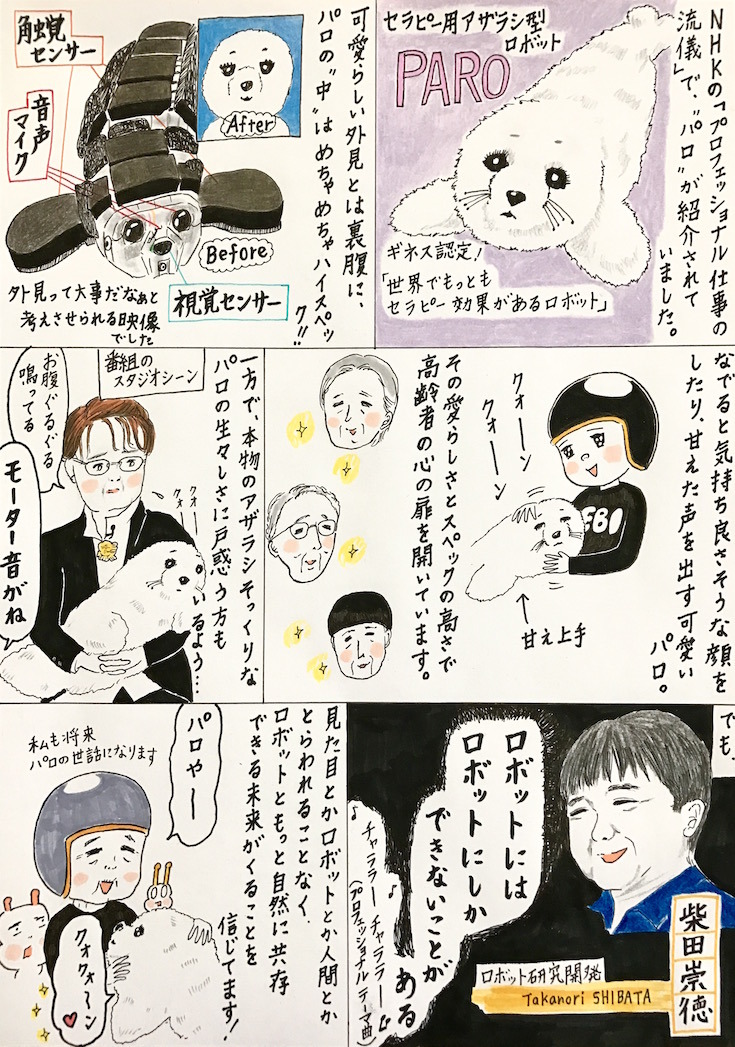 NHKの「プロフェッショナル仕事の
流儀」で、"パロ"が紹介されて
いました。
セラピー用アザラシ型
ロボット
PARO
ギネス認定!
「世界でもっとも
セラピー効果があるロボット」
可愛らしい外見とは裏腹に、
パロの"中"はめちゃめちゃハイスペッ
ク!!
触覚
センサー
音声
マイク
After
Before
視覚センサー
外見って大事だなぁと
考えさせられる映像
でした
なでると気持ち良さそうな顔を
したり、甘えた声を出す可愛い
パロ。
クォーン
クォーン
EBI
甘え上手
その愛らしさとスペックの高さで
高齢者の心の扉を開いています。
一方で、本物のアザラシそっくりな
パロの生々しさに戸惑う方も
いるよう…
番組の
スタジオシーン
お腹ぐるぐる
鳴ってる
クォー
クォー
モーター音がね
でも、
ロボットには
ロボットにしか
できないことが
ある
♪チャララー チャララー♪
(プロフェッショナル テーマ曲)
柴田崇徳
ロボット研究開発
Takanori SHIBATA
見た目とかロボットとか人間とか
とらわれることなく、
ロボットともっと自然に共存
できる未来がくることを
信じてます!
パロやー
私も将来
パロの世話になります
クォクォ〜ン♥